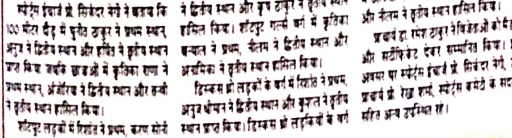 स्पोर्ट्स इंचार्ज प्रो. सिकंदर नेगी ने बताया कि
100 मीटर दौड़ में पुनीत ठाकुर ने प्रथम स्थान,
अनुज ने द्वितीय स्थान और हर्षित ने तृतीय स्थान
प्राप्त किया जबकि छात्राओं में कृतिका राणा ने
प्रथम स्थान, अंजीरिका ने द्वितीय स्थान और रूबी
ने तृतीय स्थान हासिल किया।
शॉटपुट लड़कों में रिशांत ने प्रथम, करण सोनी
ने द्वितीय स्थान और वृष ठाकुर ने तृतीय स्थान
हासिल किया। शॉटपुट गर्ल्स वर्ग में कृतिका
ने प्रथम, नीलम ने द्वितीय स्थान और
अनामिका ने तृतीय स्थान हासिल किया।
डिस्कस थ्रो लड़कों के वर्ग में रिशांत ने प्रथम,
अनुज धीमान ने द्वितीय स्थान और कुशल ने तृतीय
स्थान प्राप्त किया। डिस्कस थ्रो लड़कियों के वर्ग
और नीलम ने तृतीय स्थान हासिल किया।
प्राचार्य डा रमेश ठाकुर ने विजेताओं को मैडल
और सर्टिफिकेट देकर सम्मानित किया।
अवसर पर स्पोर्ट्स इंचार्ज प्रो. सिकंदर नेगी,
प्राचार्य प्रो. रेखा शर्मा, स्पोर्ट्स कमेटी के
सहित अन्य उपस्थित रहे।